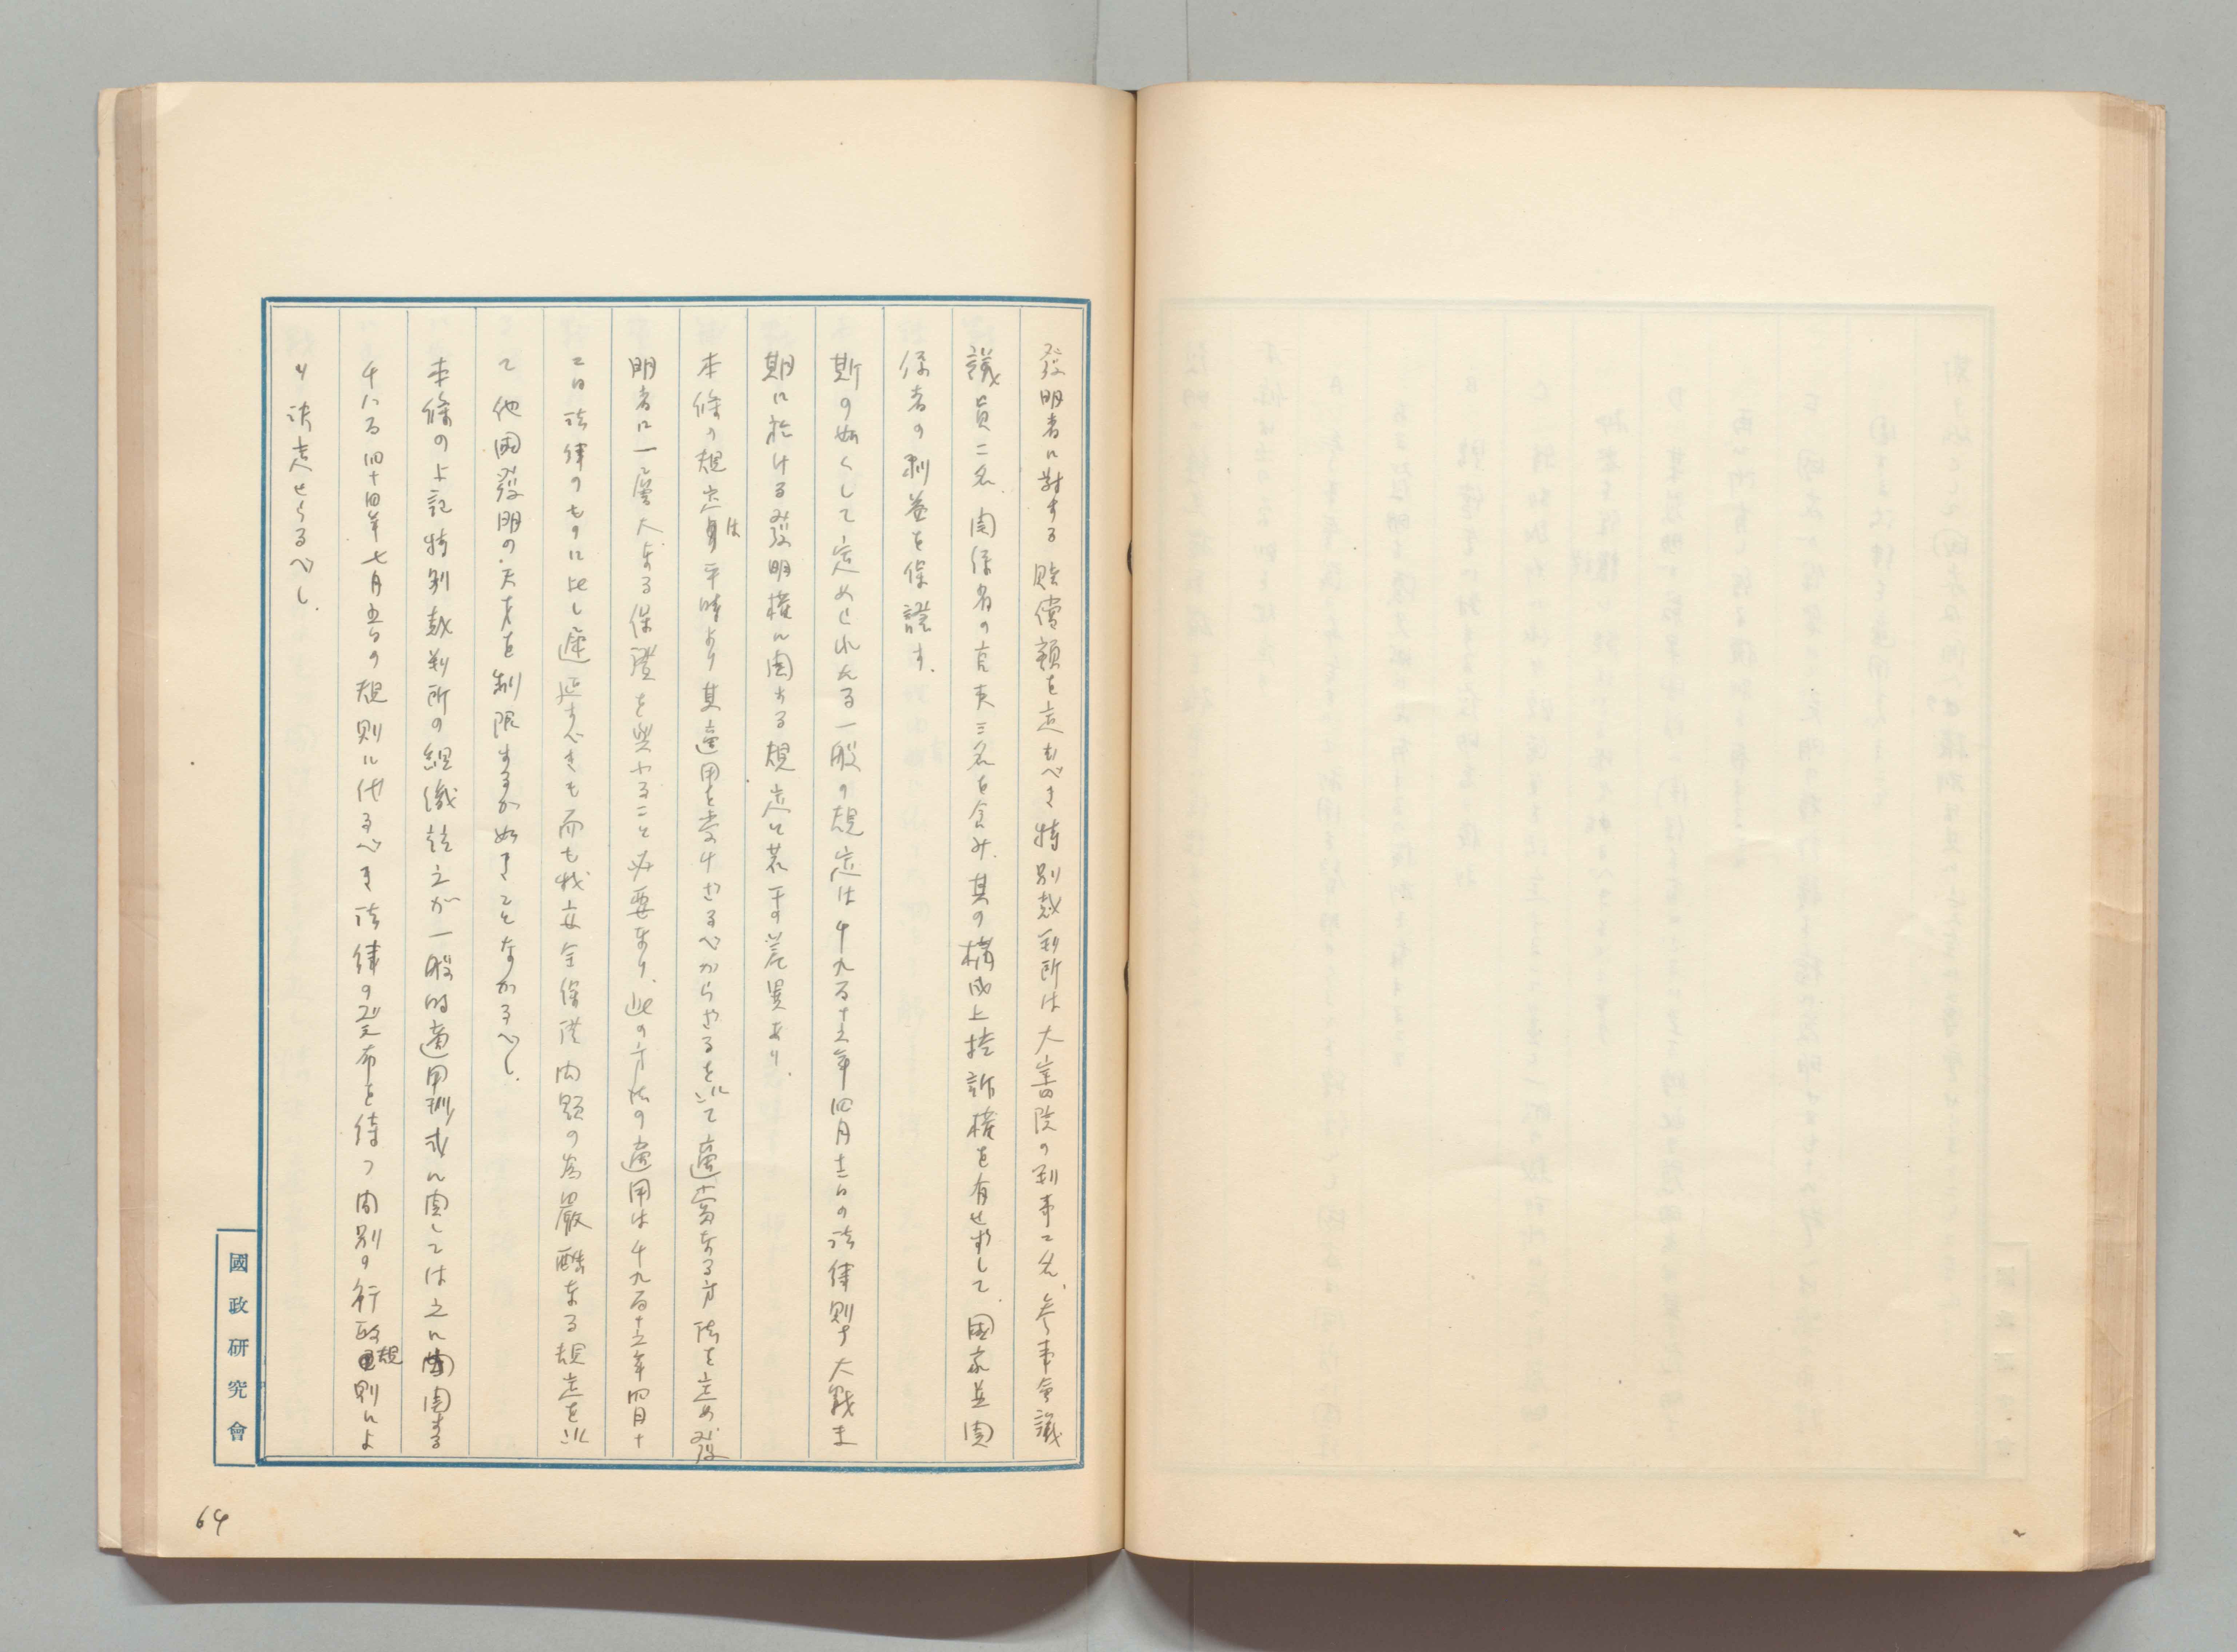 發明者に對する賠償額を定むべき特別裁判所は大審院の判事二名、參事會議
議員二名、関係者の高夫三名を含み、其の構成上控訴權を有せずして、國家並関
係者の利益を保證す。
斯の如くして定められたる一般の規定は千九百十六年四月十二日の法律則ち大戰末
期に於ける發明權に関する規定と若干の差異あり、
本條の規定は平時より其適用を受けざるべからざるを以て適當なる方法を定め發
明者に一層大なる保證を與ふること必要なり、此の方法の適用は千九百十六年四月十
二日法律のものに比し遲延すべきも而も我安全保障問題の為嚴酷なる規定を以
て他国發明の天才を制限するが如きことなかるべし、
本條の上記特別裁判所の組織竝之が一般的適用形式に関しては之に関する
千八百四十四年七月五日の規則に代るべき法律の發布を待つ間別の行政規則によ
り決定せらるべし、
國政研究會
64